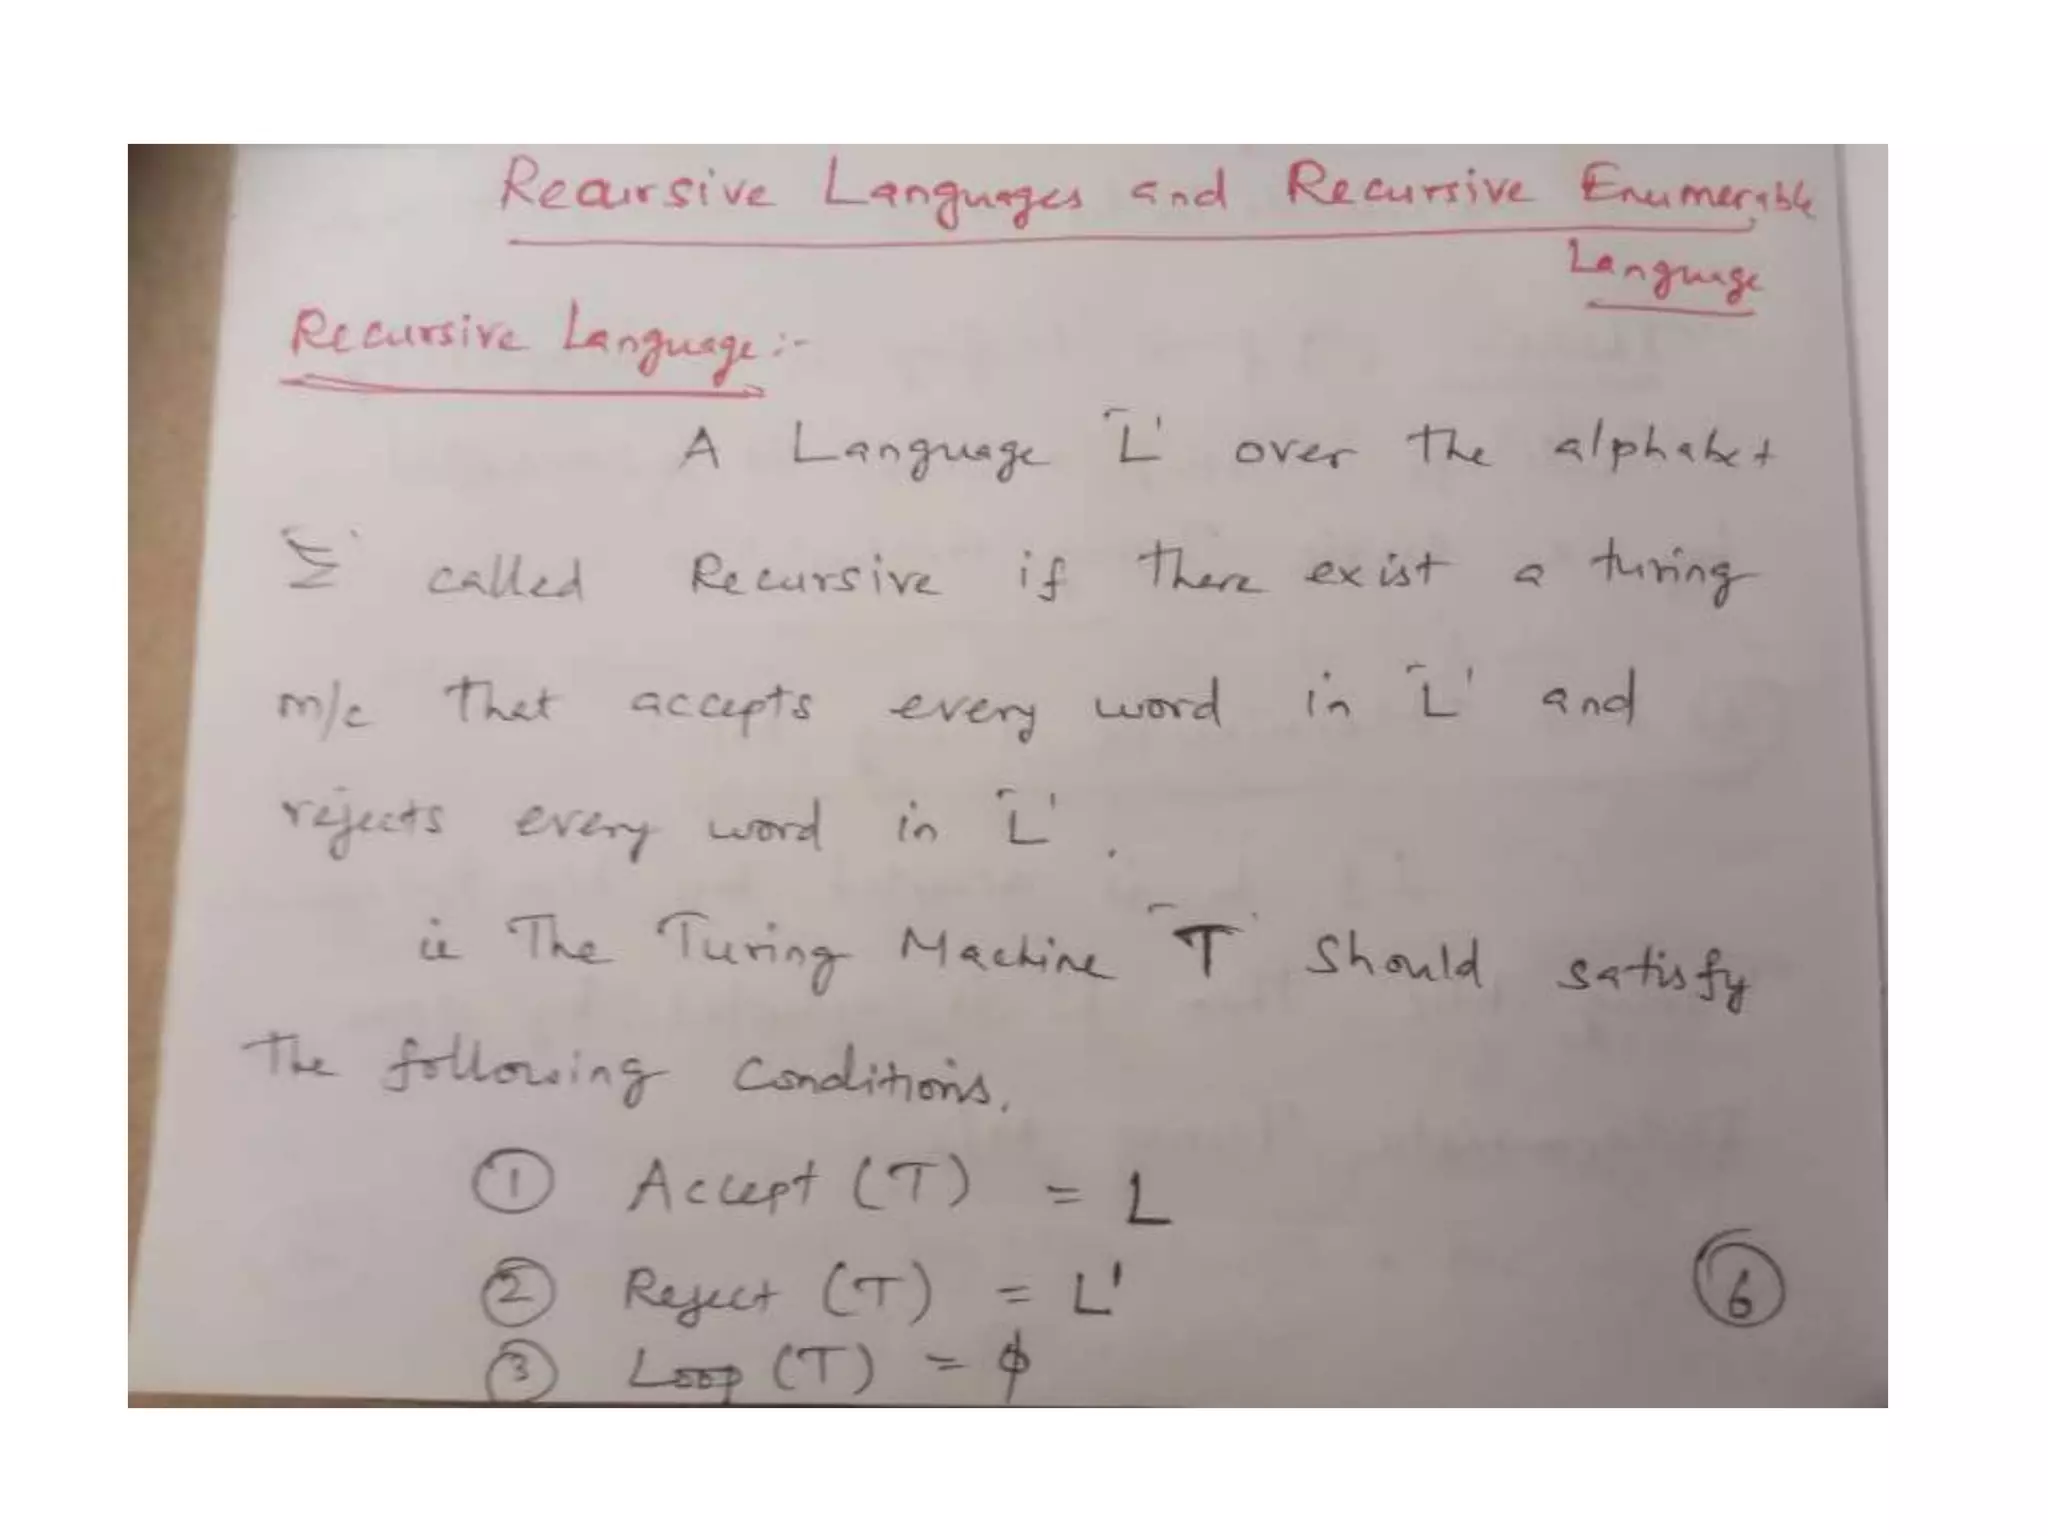 Recursive Languages and Recursive Enumerable
Language
Recursive Language:-
A Language 'L' over the alphabet
'Σ' called Recursive if there exist a turing
m/c that accepts every word in 'L' and
rejects every word in 'L'.
ie The Turing Machine 'T' should satisfy
the following conditions.
① Accept (T) = L
② Reject (T) = L'
③ Loop (T) = ϕ
⑥